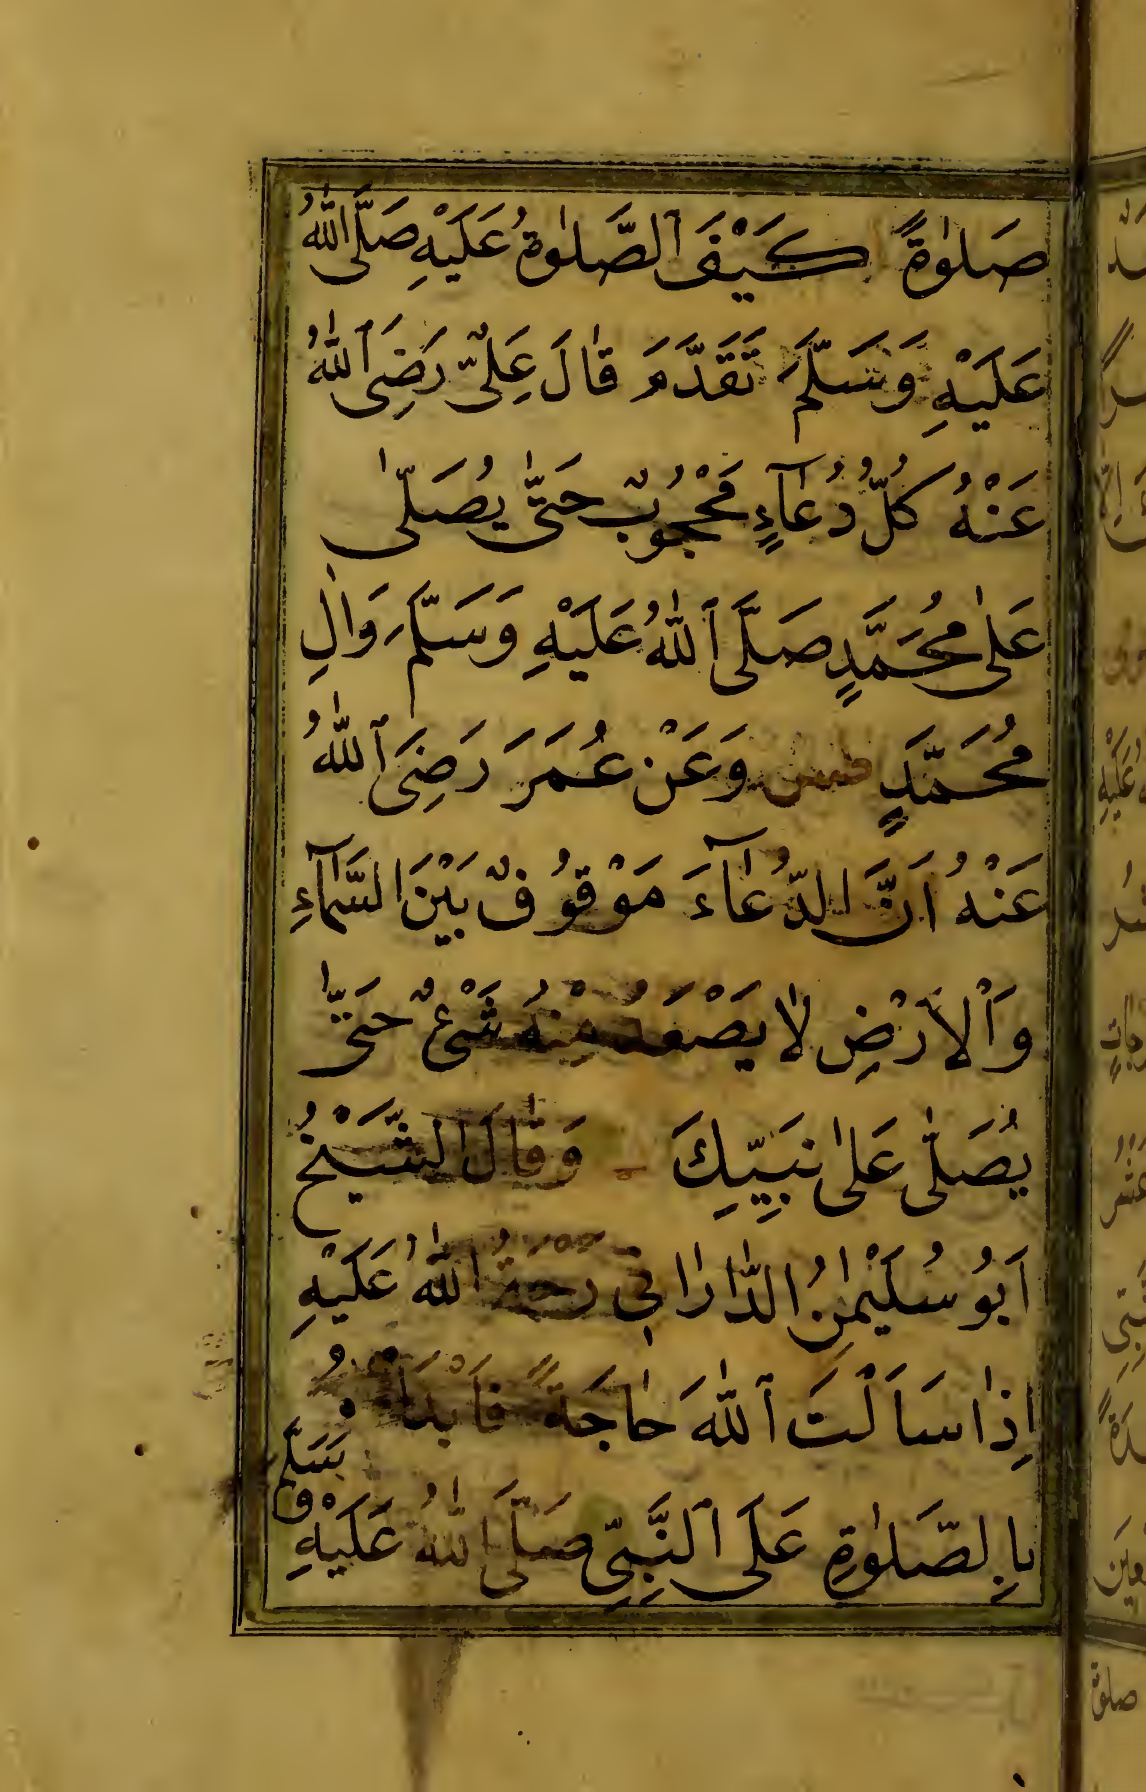 صَلٰوةً كَيْفَ ٱلصَّلٰوةُ عَلَيْهِ صَلَّى اللّٰهُ
عَلَيْهِ وَسَلَّمَ تَقَدَّمَ قٰالَ عَلِىٌّ رَضِىَ ٱللّٰهُ
عَنْهُ كُلُّ دُعٰآءٍ مَحْجُوبٌ حَتّٰى يُصَلّٰى
عَلٰى مُحَمَّدٍ صَلَّى ٱللّٰهُ عَلَيْهِ وَسَلَّمَ وَاٰلِ
مُحَمَّدٍ طس وَعَنْ عُمَرَ رَضِىَ ٱللّٰهُ
عَنْهُ اَنَّ الدُّعٰآءَ مَوْقُوفٌ بَيْنَ السَّمَآءِ
وَٱلْاَرْضِ لٰا يَصْعَدُ مِنْهُ شَىْءٌ حَتّٰى
يُصَلّٰى عَلٰى نَبِيِّكَ وَقٰالَ الشَّيْخُ
اَبُو سُلَيْمٰنُ الدّٰارٰانِى رَحْمَةُ اللّٰهُ عَلَيْهِ
اِذٰا سَاَلْتَ ٱللّٰهَ حٰاجَةً فَابْدَاْ
وَسَلَّمَ
بِالصَّلٰوةِ عَلَى ٱلنَّبِىِّ صَلَّى اللّٰهُ عَلَيْهِ
صلوة